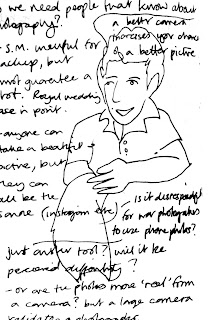 o we need people that know about
photography?
a better camera
increases your chance
of a better picture
- S.M. useful for
backup, but
not guarantee a
shot. Royal wedding
case in point.
- anyone can
take a beautiful
picture, but
they can
all be the
same (instagram etc)
- Is it disrespectful
for war photographers
to use phone photos?
just another tool? will it be
perceived differently?
- or are the photos more 'real' from
a camera? but a large camera
a photographer